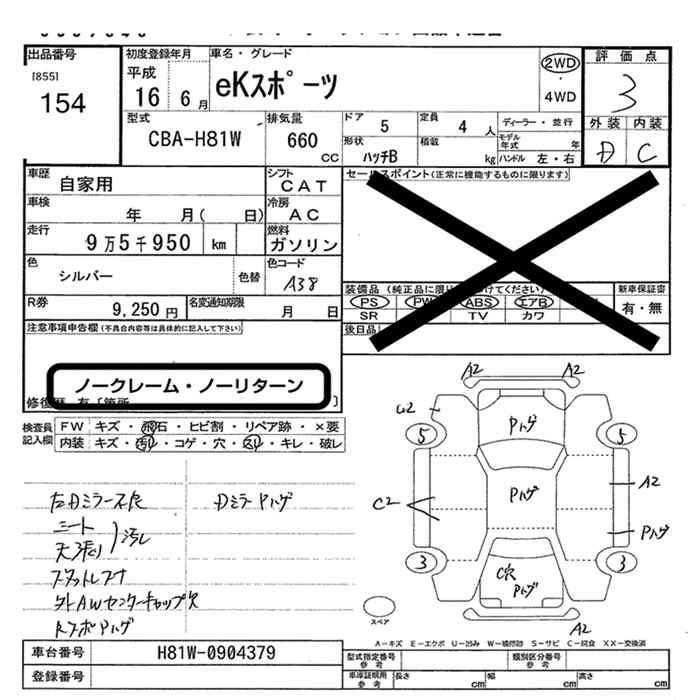 出品番号
[855]
154
初度登録年月
平成
16 6月
車名・グレード
eKスポーツ
2WD
・
4WD
評価点
3
外装 内装
D C
型式
CBA-H81W
排気量
660
CC
ドア 5
形状
ハッチB
定員 4人
積載 kg
ディーラー・並行
モデル年式 年
ハンドル 左・右
車歴 自家用
シフト
CAT
車検 年 月( 日)
冷房
AC
走行 9万5千950 km
燃料
ガソリン
色 シルバー 色替
色コード
A38
R券 9,250円
名変通知期限 月 日
セールスポイント(正常に機能するものに限ります)
装備品 (純正品に限り けてください)
PS PW ABS エアB
SR TV カワ
新車保証書
有・無
後日品
注意事項申告欄(不具合内容等は具体的に記入して下さい)
ノークレーム・ノーリターン
修復歴 有「箇所 〕
検査員記入欄
FW キズ・飛石・ヒビ割・リペア跡・×要
内装 キズ・汚れ・コゲ・穴・スリ・キレ・破レ
左Dミラー不良
Dミラーハゲ
シート
天張り 汚レ
外AWセンターキャップ欠
A2 A2
U2
5 5
Pハゲ
Pハゲ
C2
A2
Pハゲ
3 3
C穴
Pハゲ
A2
スペア
A-キズ E-エクボ U-凹み W-補修跡 S-サビ C-腐食 XX-交換済
車台番号 H81W-0904379
登録番号
型式指定番号
参考
類別区分番号
参考
車庫証明用
参考
長さ cm
幅 cm
高さ cm